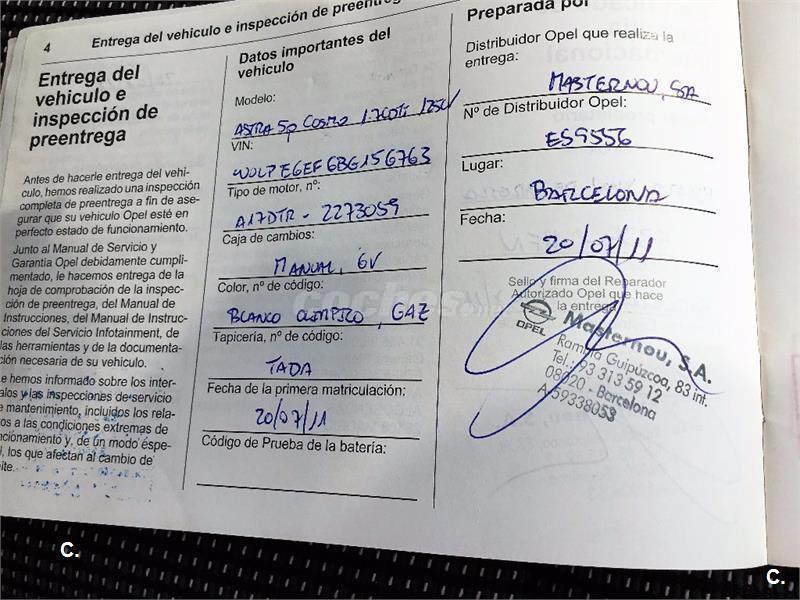 4
Entrega del vehículo e inspección de preentrega
Entrega del
vehículo e
inspección de
preentrega
Antes de hacerle entrega del vehí-
culo, hemos realizado una inspección
completa de preentrega a fin de ase-
gurar que su vehículo Opel esté en
perfecto estado de funcionamiento.
Junto al Manual de Servicio y
Garantía Opel debidamente cumpli-
mentado, le hacemos entrega de la
hoja de comprobación de la inspec-
ción de preentrega, del Manual de
Instrucciones, del Manual de Instruc-
ciones del Servicio Infotainment, de
las herramientas y de la documenta-
ción necesaria de su vehículo.
e hemos informado sobre los inter-
alos y las inspecciones de servicio
e mantenimiento, incluidos los rela-
os a las condiciones extremas de
ncionamiento y, de un modo espe-
l, los que afectan al cambio de
ite.
Datos importantes del
vehículo
Modelo:
ASTRA 5p COSMO 1.7CDTi 125CV
VIN:
W0LPE6EF6BG156763
Tipo de motor, nº:
A17DTR - 2273059
Caja de cambios:
MANUAL, 6V
Color, nº de código:
BLANCO OLIMPICO, GAZ
Tapicería, nº de código:
TADA
Fecha de la primera matriculación:
20/07/11
Código de Prueba de la batería:
Preparada por
Distribuidor Opel que realiza la
entrega:
MASTERNOU, SA
Nº de Distribuidor Opel:
ES9556
Lugar:
BARCELONA
Fecha:
20/07/11
Sello y firma del Reparador
Autorizado Opel que hace
la entrega
OPEL
Masternou, S.A.
Rambla Guipúzcoa, 83 int.
Tel.: 93 313 59 12
08020 - Barcelona
A/59338053
C.
C.